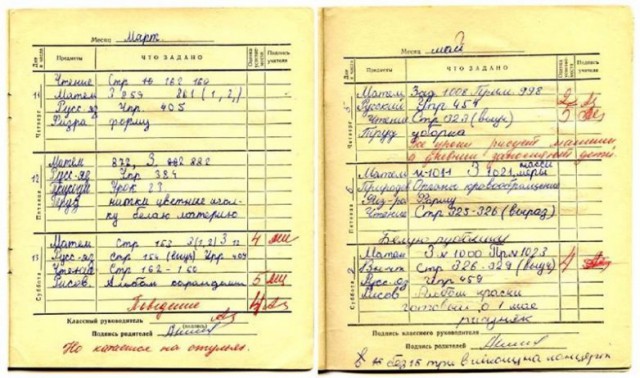 Месяц Март
Дни и числа Предметы ЧТО ЗАДАНО Подпись учителя
Четверг 11
Чтение Стр 162 160
Матем З 259 261 (1, 2,)
Русс-яз Упр. 405
Физра форму
Пятница 12
Матем 882
Русс-яз Упр 384
Природа Урок 23
Труд нитки цветные игол-
ку белаю материю
Суббота 13
Матем Стр 153 3(1,2) 4
Русс-яз Стр 154 (выуч) Упр 404
Чтение Стр 162-160
Рисов Альбом карандаши 5
Поведение 4
Классный руководитель
Подпись родителей
Но катается на стульях.
Месяц май
Дни и числа Предметы ЧТО ЗАДАНО Подпись учителя
Четверг 5
Матем Зад 1006 Прим 998 2
Русский Упр 457 5
Чтение Стр 323 (выуч)
Труд уборка
Все уроки рисует машины
а дневник заполняют дети
Пятница 6
Матем N-1011 З 1021 меры массы
Природа Органы кровообращения
Физ-ра Форму
Чтение Стр 325-326 (выраз)
Белую рубашку
Суббота
Матем З N 1000 Пр N 1023 4
Чтение Стр 326-327 (выуч)
Русс-яз Упр 459
Рисов Альбом краски
готовый о 1 мае
рисунок
Подпись классного руководителя
Подпись родителей